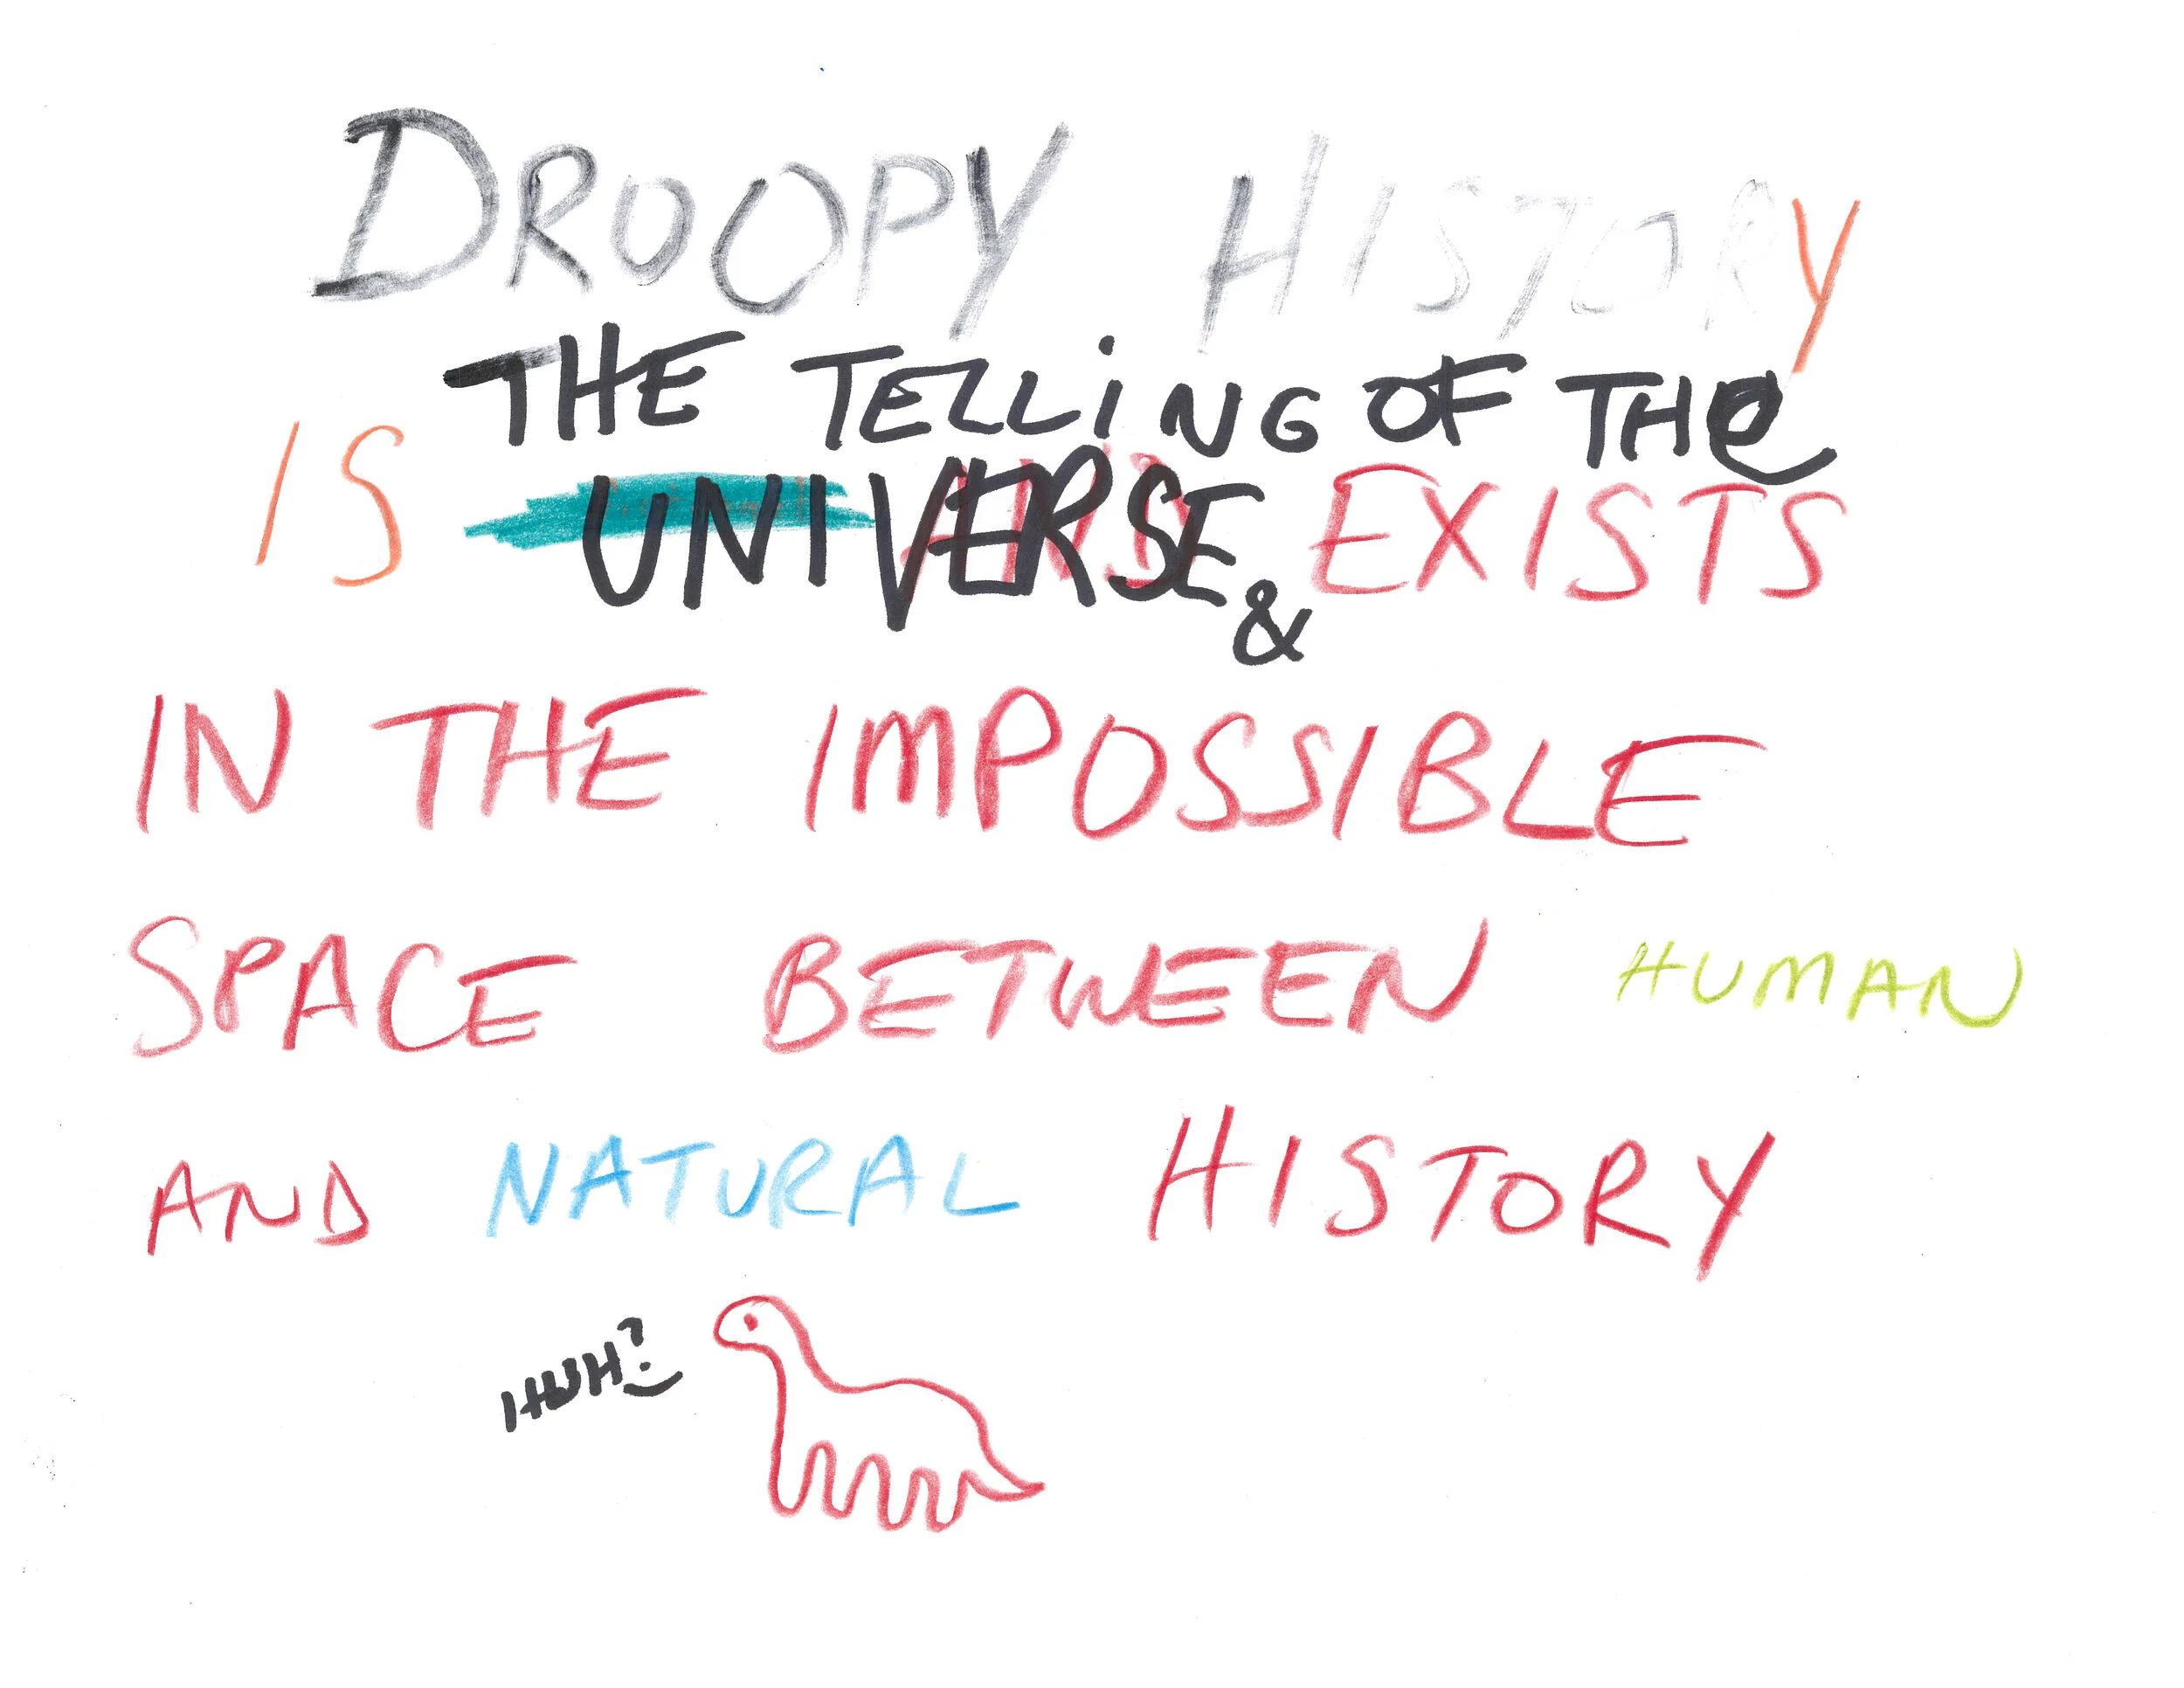 DROOPY HISTORY
IS THE TELLING OF THE
UNIVERSE & EXISTS
IN THE IMPOSSIBLE
SPACE BETWEEN HUMAN
AND NATURAL HISTORY
HUH?